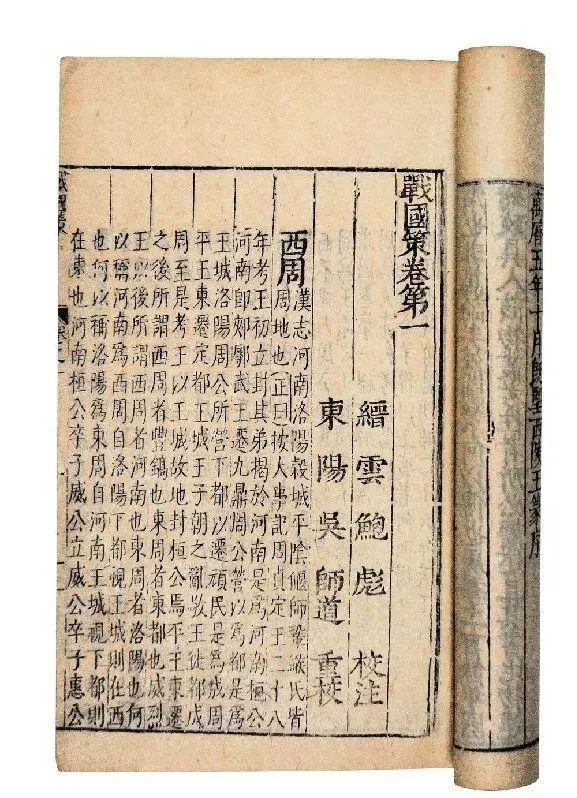 萬曆五年十月既望西陵王篆序
戰國策卷第一
縉雲鮑彪 校注
東陽吳師道 重校
西周 漢志河南洛陽穀城平陰偃師鞏緱氏皆
周地也正曰按大事記周貞定王二十八
年考王初立封其弟揭於河南是爲河南桓公
河南即郟鄏武王遷九鼎周公營以爲都是爲
王城洛陽周公所營下都以遷頑民是爲成周
平王東遷定都王城王子朝之亂敬王徙都成
周至是考王以王城故地封桓公焉平王東遷
之後所謂西周者豐鎬也東周者東都也威烈
王以後所謂西周者河南也東周者洛陽也何
以稱河南爲西周自洛陽下都視王城則在西
也何以稱洛陽爲東周自河南王城視下都則
在東也河南桓公卒子威公立威公卒子惠公
戰國策